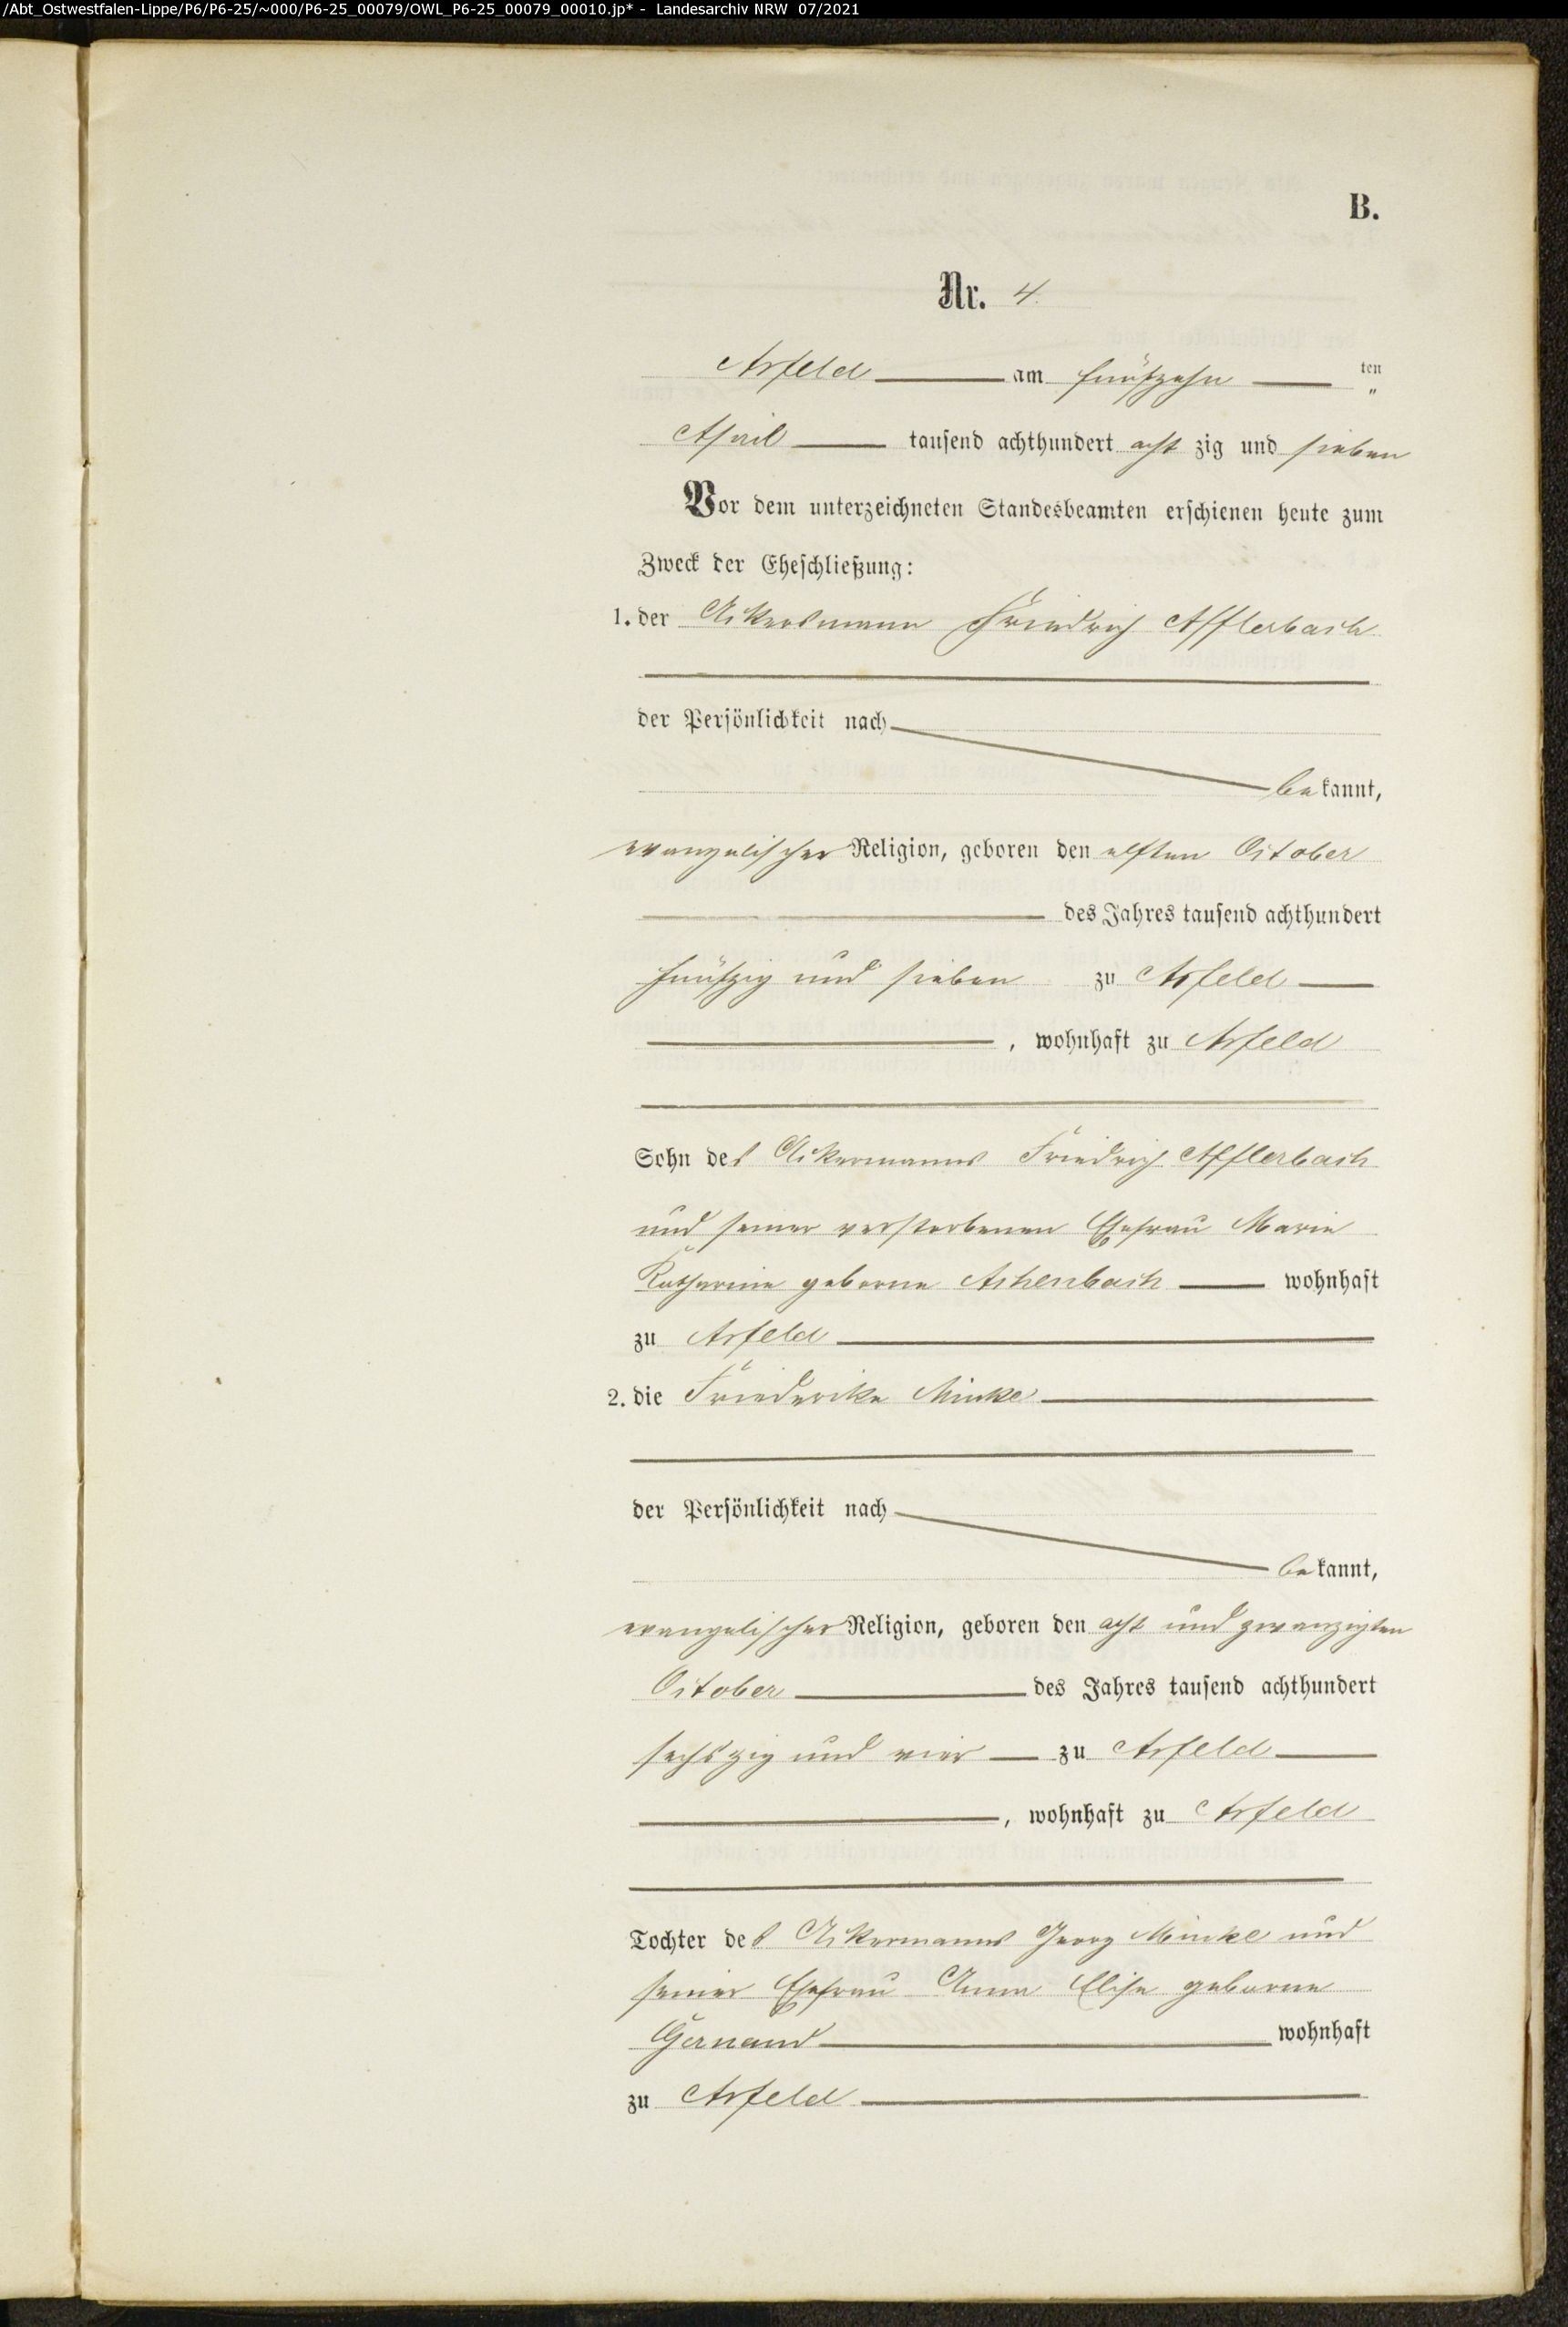 /Abt_Ostwestfalen-Lippe/P6/P6-25/~000/P6-25_00079/OWL_P6-25_00079_00010.jp* - Landesarchiv NRW 07/2021
B.
Nr. 4.
Arfeld am fünfzehn ten
April tausend achthundert acht zig und sieben
Vor dem unterzeichneten Standesbeamten erschienen heute zum
Zweck der Eheschließung:
1. der Ackersmann Friedrich Afflerbach
der Persönlichkeit nach
bekannt,
evangelischer Religion, geboren den elften October
des Jahres tausend achthundert
fünfzig und sieben zu Arfeld
, wohnhaft zu Arfeld
Sohn des Ackermanns Friedrich Afflerbach
und seiner verstorbenen Ehefrau Marie
Katharine geborne Achenbach wohnhaft
zu Arfeld
2. die Friederike Minke
der Persönlichkeit nach
bekannt,
evangelischer Religion, geboren den acht und zwanzigten
October des Jahres tausend achthundert
sechszig und vier zu Arfeld
, wohnhaft zu Arfeld
Tochter des Ackermanns Georg Minke und
seiner Ehefrau Anna Elise geborne
Gernand wohnhaft
zu Arfeld